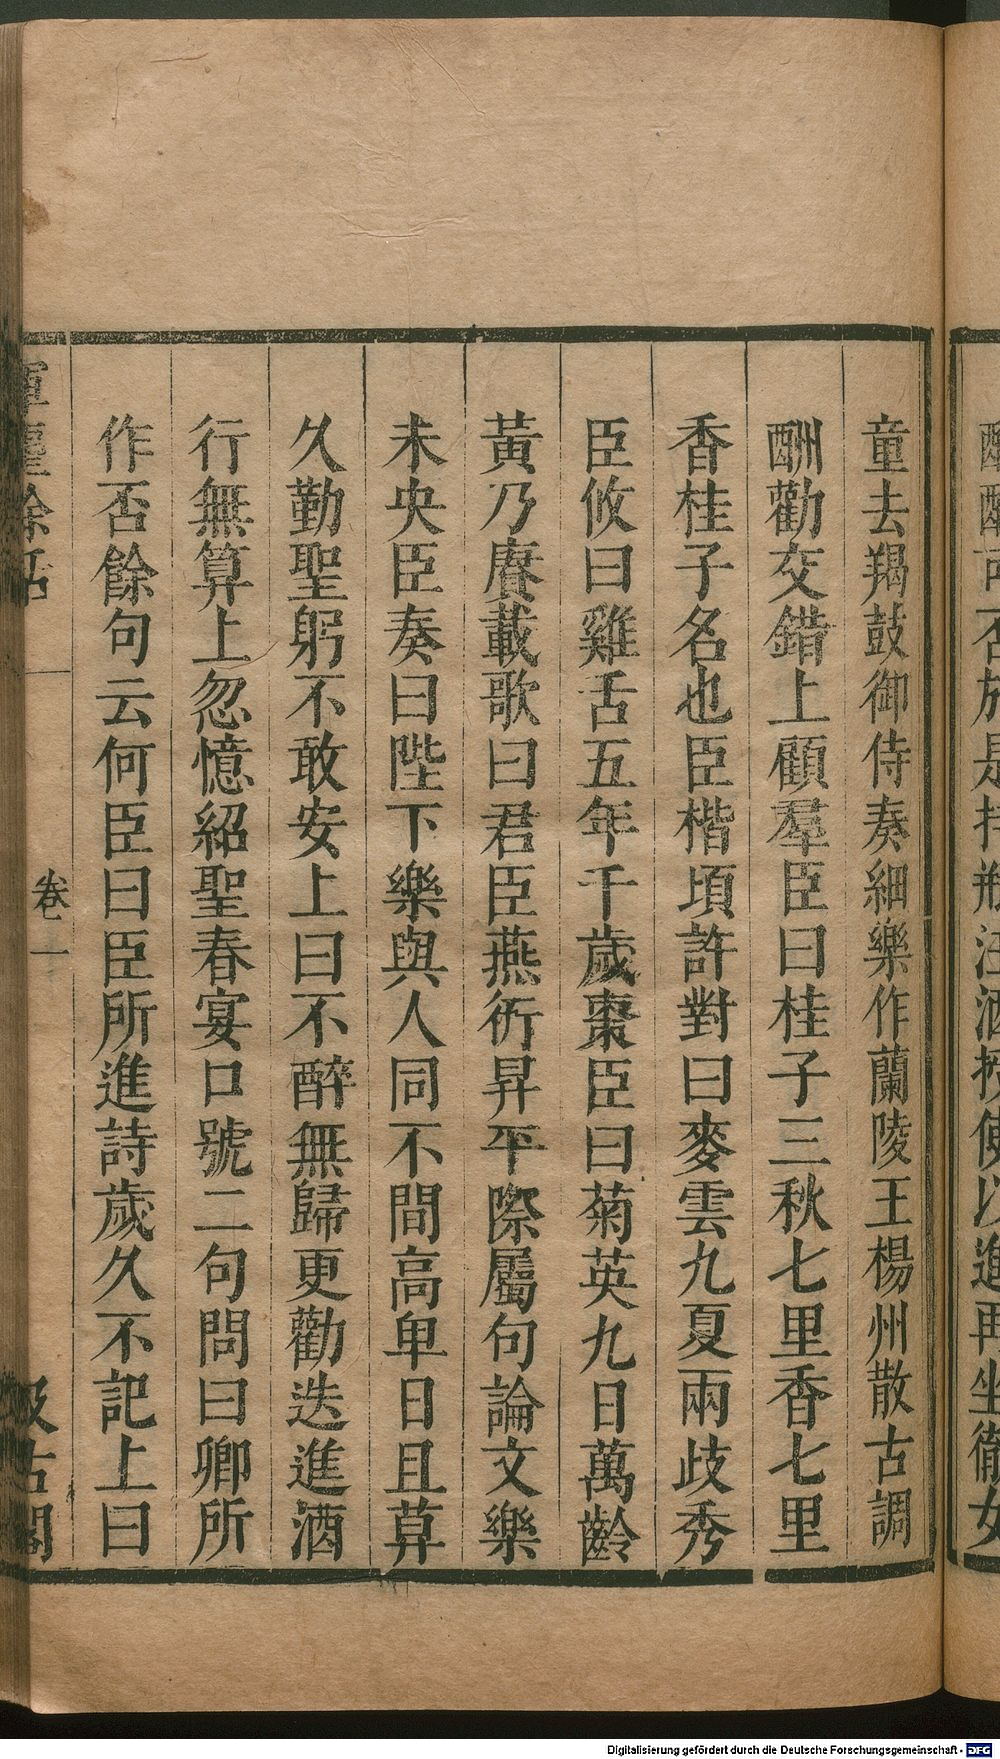 童去羯鼓御侍奏細樂作蘭陵王楊州散古調
酬勸交錯上顧羣臣曰桂子三秋七里香七里
香桂子名也臣楷頃許對曰麥雲九夏兩歧秀
臣攸曰雞舌五年千歲棗臣曰菊英九日萬齡
黃乃賡載歌曰君臣燕衎昇平際屬句論文樂
未央臣奏曰陛下樂與人同不間高卑日且莫
久勤聖躬不敢安上曰不醉無歸更勸迭進酒
行無算上忽憶紹聖春宴口號二句問曰卿所
作否餘句云何臣曰臣所進詩歲久不記上曰
卷一
汲古閣
Digitalisierung gefördert durch die Deutsche Forschungsgemeinschaft - DFG